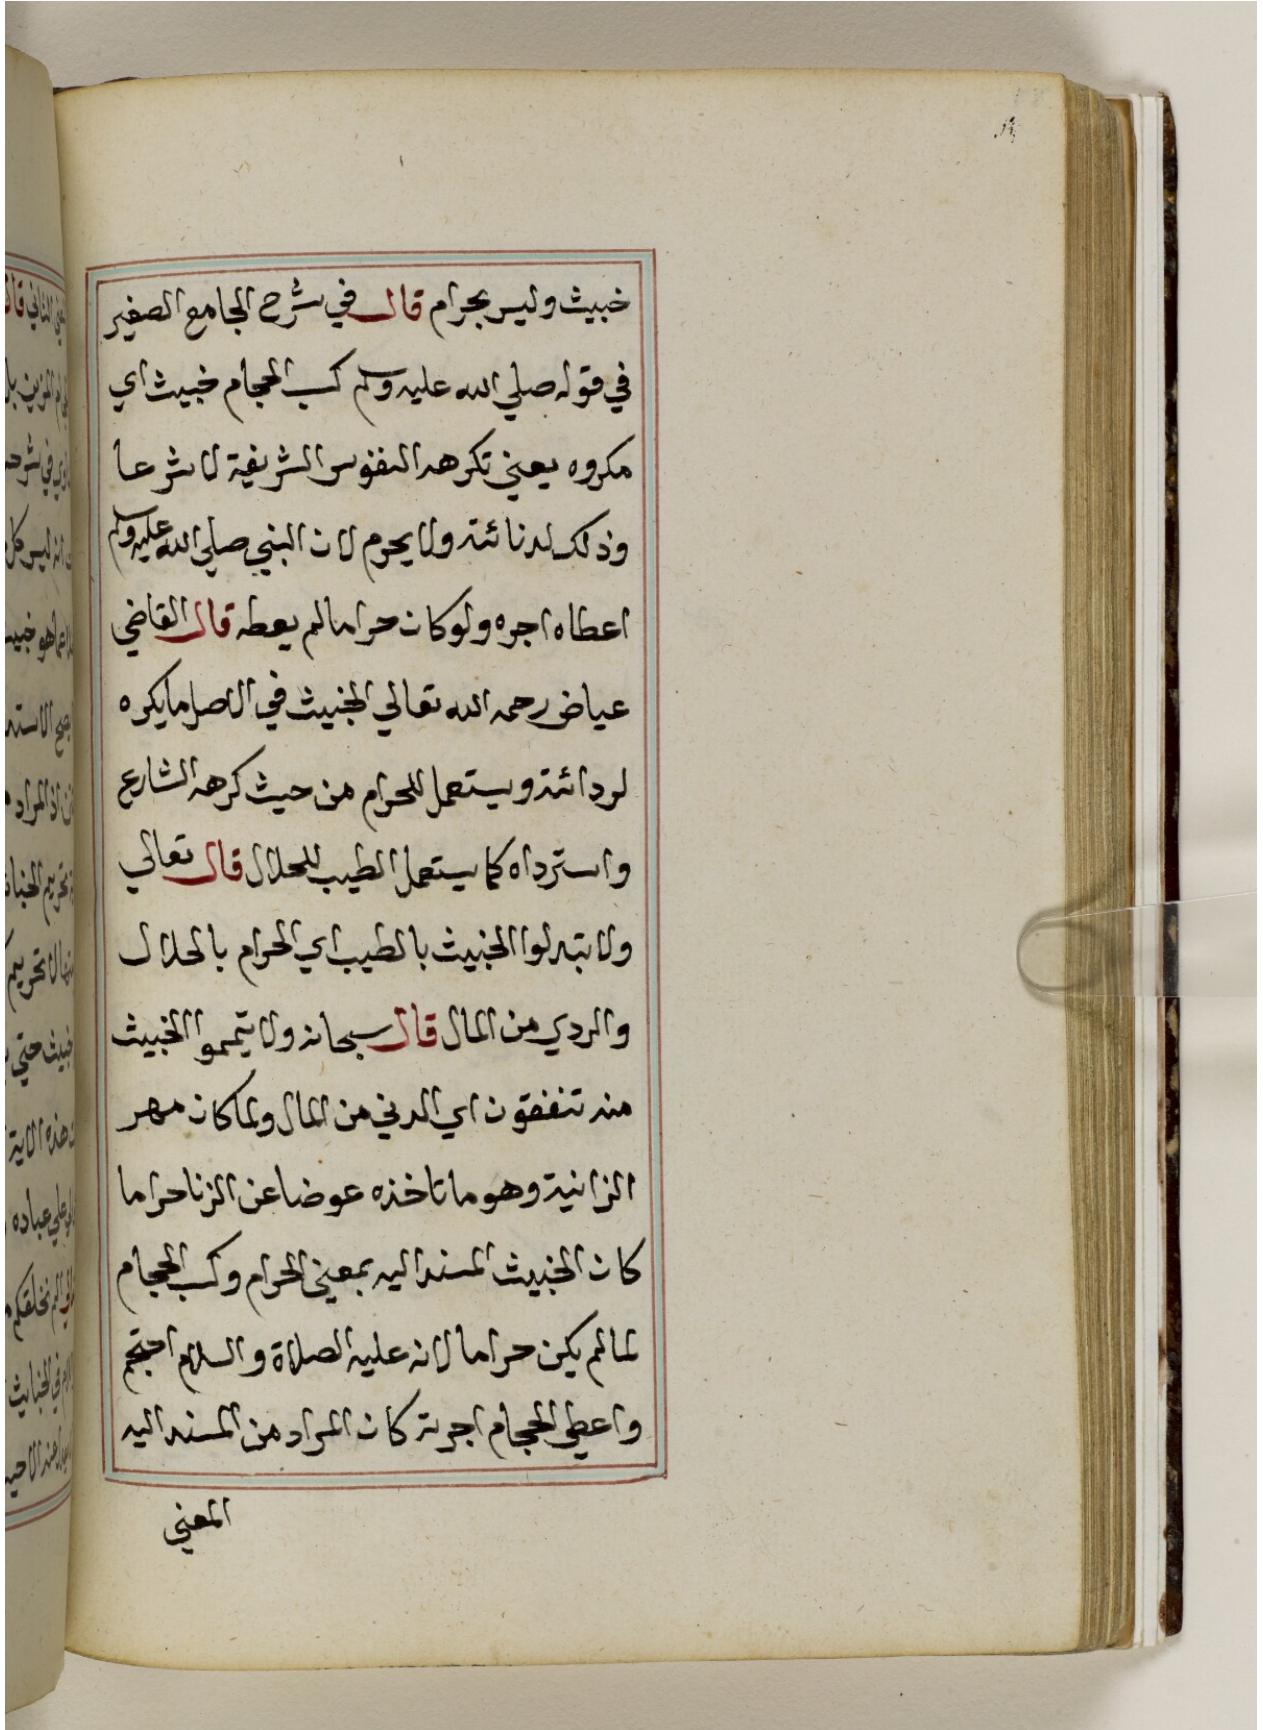 خبيث وليس بحرام قال في شرح الجامع الصغير
في قوله صلي الله عليه وسلم كسب الحجام خبيث اي
مكروه يعني تكرهه النفوس الشريفة لا شرعا
وذلك لدنائته ولا يحرم لان النبي صلي الله عليه وسلم
اعطاه اجره ولو كان حراما لم يعطه قال القاضي
عياض رحمه الله تعالي الخبيث في الاصل ما يكره
لردائته ويستعمل للحرام من حيث كرهه الشارع
واسترداه كما يستعمل الطيب للحلال قال تعالي
ولا تتبدلوا الخبيث بالطيب اي الحرام بالحلال
والردي من المال قال سبحانه ولا تيمموا الخبيث
منه تنفقون اي الدني من المال ولما كان مهر
الزانية وهو ما تاخذه عوضا عن الزنا حراما
كان الخبيث المسند اليه بمعني الحرام وكسب الحجام
لما لم يكن حراما لانه عليه الصلاة والسلام احتجم
واعطي الحجام اجرته كان المراد من المسند اليه
المعني